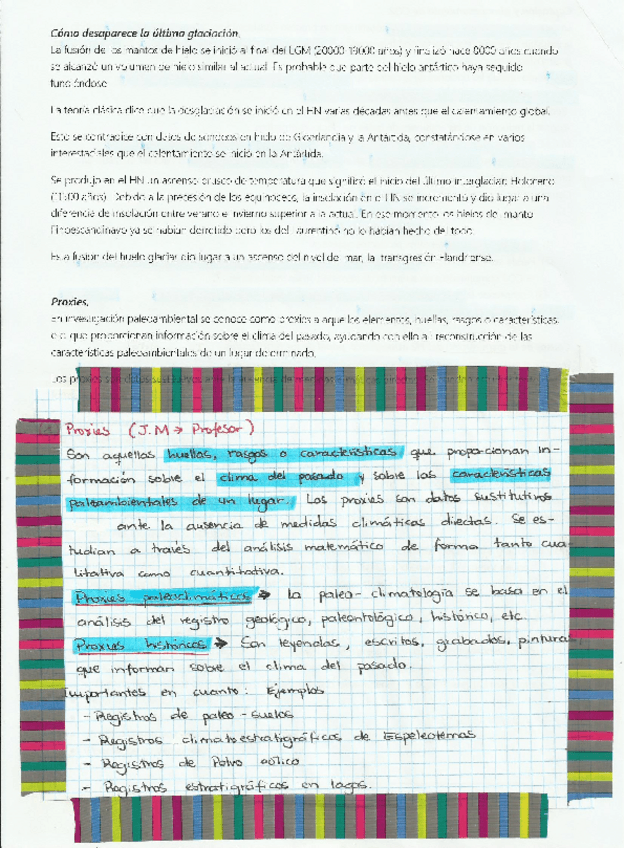 Cómo desaparece la última glaciación.
La fusión de los mantos de hielo se inició al final del LGM (20000-19000 años) y finalizó hace 8000 años cuando
se alcanzó un volumen de hielo similar al actual. Es probable que parte del hielo antártico haya seguido
fundiéndose.
La teoría clásica dice que la desglaciación se inició en el HN varias décadas antes que el calentamiento global.
Esto se contradice con datos de sondeos en hielo de Groenlandia y la Antártida, constatándose en varios
interestadiales que el calentamiento se inició en la Antártida.
Se produjo en el HN un ascenso brusco de temperatura que significó el inicio del último interglaciar: Holoceno
(11500 años). Debido a la precesión de los equinoccios, la insolación en el HN se incrementó y dio lugar a una
diferencia de insolación entre verano e invierno superior a la actual. En ese momento los hielos del manto
Finoescandinavo ya se habían derretido pero los del Laurentino no lo habían hecho del todo.
Esta fusión del hielo glaciar dio lugar a un ascenso del nivel del mar, la transgresión Flandriense.
Proxies.
En investigación paleoambiental se conoce como proxies a aquellos elementos, huellas, rasgos o características
que proporcionan información sobre el clima del pasado, ayudando con ello a la reconstrucción de las
características paleoambientales de un lugar determinado.
Los proxies son datos sustitutivos ante la ausencia de
Proxies (J.M → Profesor)
Son aquellas huellas, rasgos o características que proporcionan in-
formación sobre el clima del pasado y sobre las características
paleambientales de un lugar. Los proxies son datos sustitutivos
ante la ausencia de medidas climáticas diectas. Se es-
tudian a través del análisis matemático de forma tanto cua-
litativa como cuantitativa.
Proxies paleoclimáticos → La paleo-climatología se basa en el
análisis del registro geológico, paleontológico, histórico, etc.
Proxies históricos → Son leyendas, escritos, grabados, pinturas,
que informan sobre el clima del pasado.
Importantes en cuanto: Ejemplos
- Registros de paleo-suelos
- Registros climatoestratigráficos de Espeleotemas
- Registros de Polvo eólico
- Registros estratigráficos en lagos.